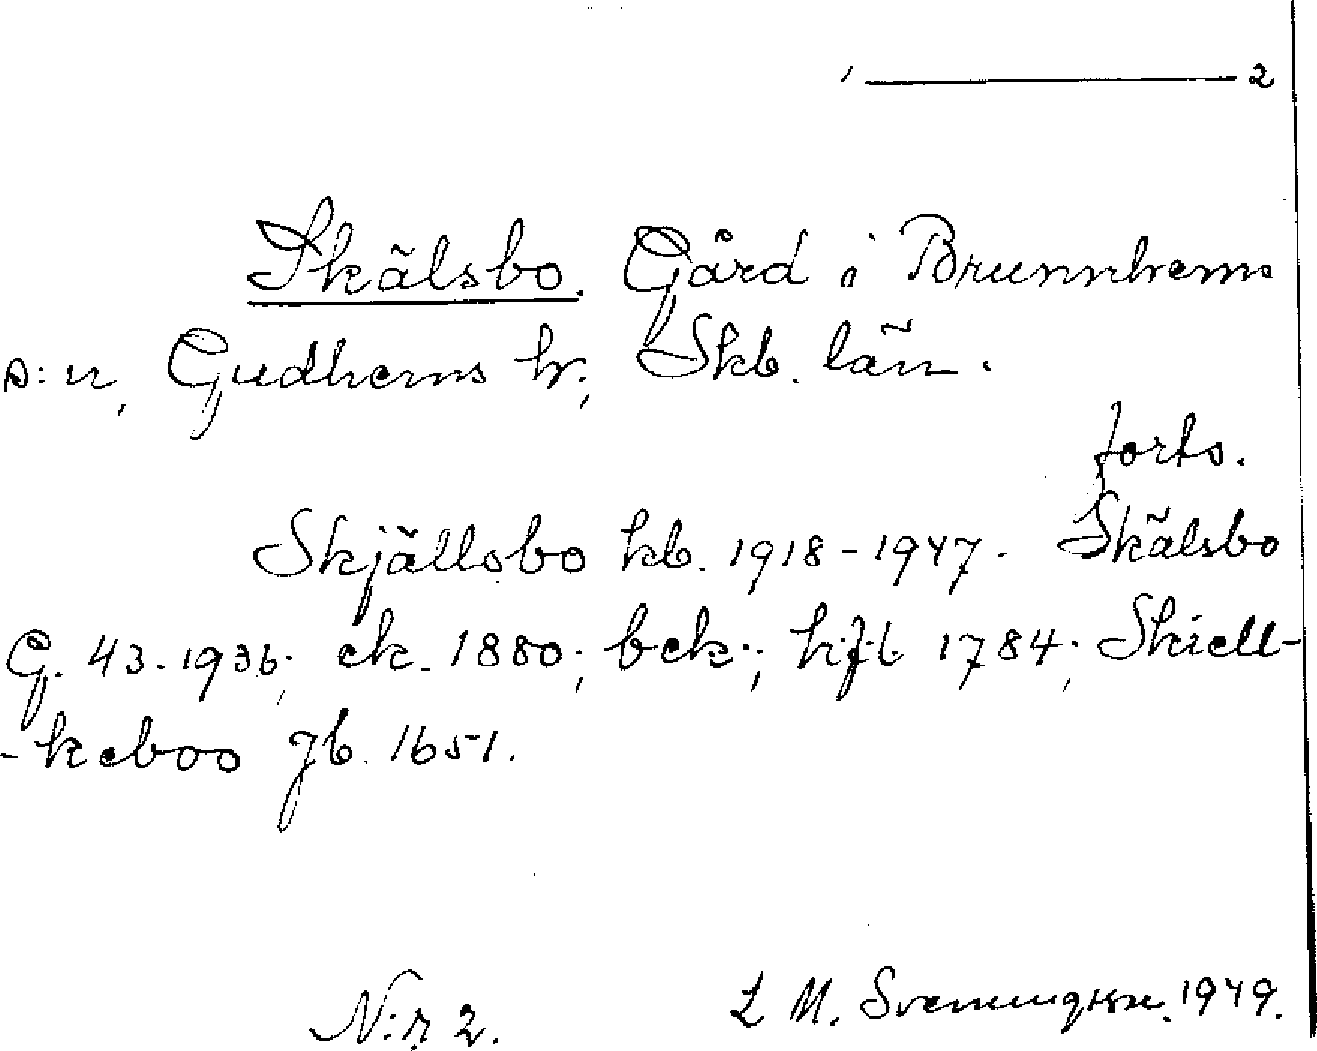 2
Skälsbo. Gård i Brunnhems
s:n, Gudhems hr, Skb. län.
forts.
Skjällsbo kb. 1918-1947. Skälsbo
G. 43-1936; ek. 1880; bek.; hfl 1784; Skiell-
-keboo jb. 1651.
N:r 2. L M. Svenungsson. 1949.